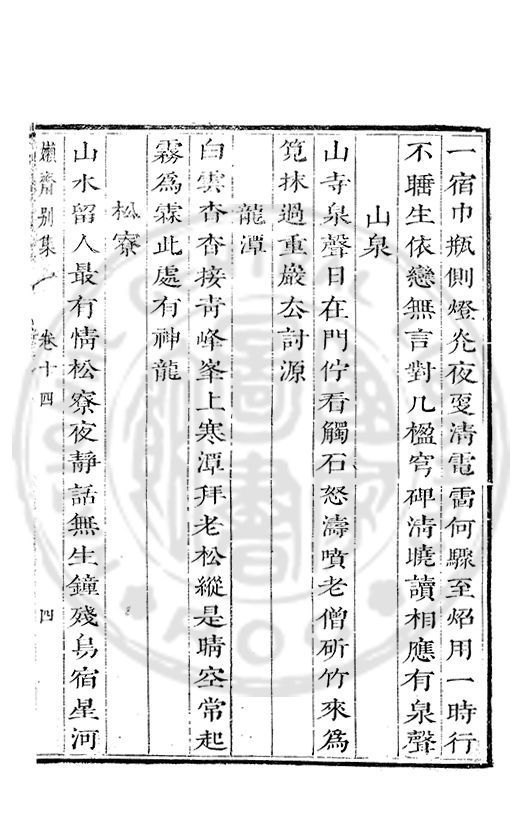 一宿巾瓶側燈光夜更清電雷何驟至炤用一時行
不睡生依戀無言對几楹穹碑清曉讀相應有泉聲
山泉
山寺泉聲日在門佇看觸石怒濤噴老僧斫竹來為
筧抹過重巖去討源
龍潭
白雲杳杳接青峰峯上寒潭拜老松縱是晴空常起
霧為霖此處有神龍
松寮
山水留人最有情松寮夜靜話無生鐘殘鳥宿星河
嬾齋別集 卷十四 四